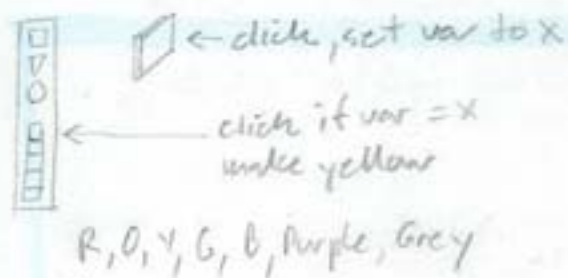 click, set var to X
click if var = X
make yellow
R, O, Y, G, B, Purple, Grey